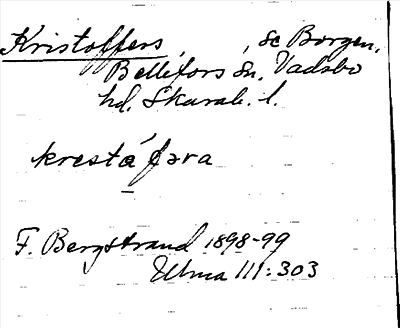 Kristoffers, , se Borgen,
Bellefors sn, Vadsbo
hd, Skarab. l.
krestáfəra
F. Bergstrand 1898-99
Ulma 111:303